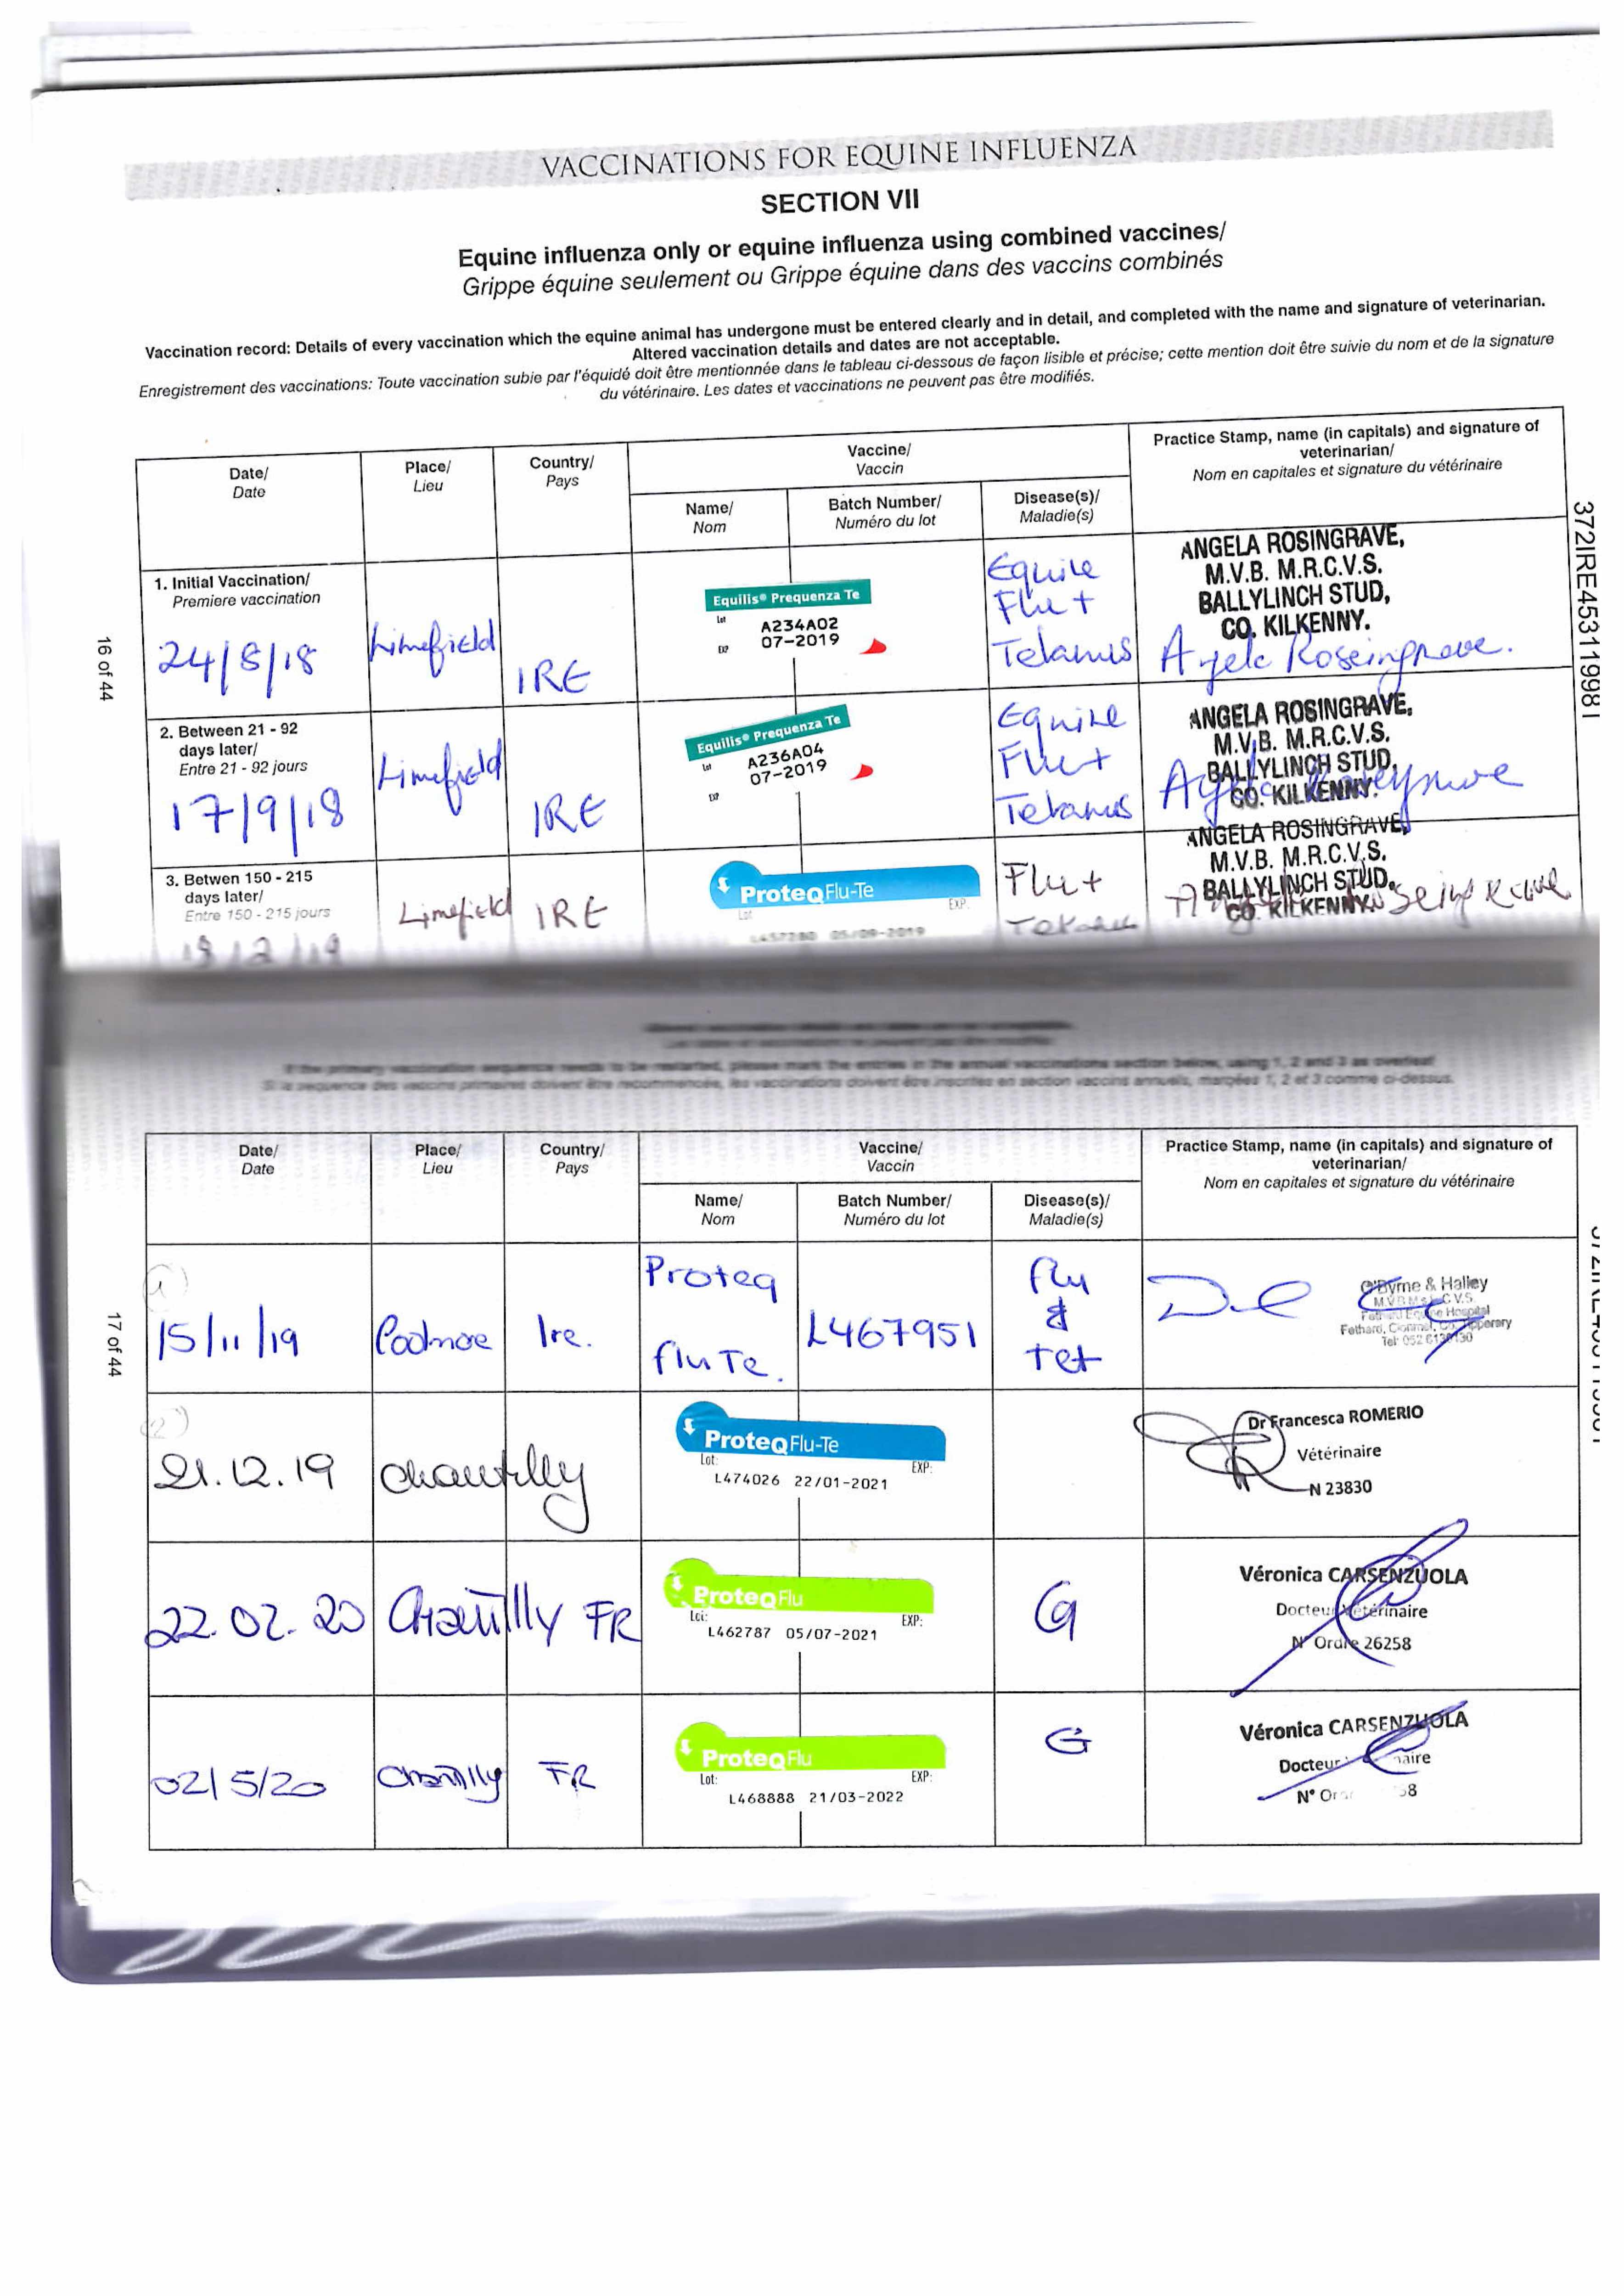 VACCINATIONS FOR EQUINE INFLUENZA
SECTION VII
Equine influenza only or equine influenza using combined vaccines/
Grippe équine seulement ou Grippe équine dans des vaccins combinés
Vaccination record: Details of every vaccination which the equine animal has undergone must be entered clearly and in detail, and completed with the name and signature of veterinarian.
Altered vaccination details and dates are not acceptable.
Enregistrement des vaccinations: Toute vaccination subie par l'équidé doit être mentionnée dans le tableau ci-dessous de façon lisible et précise; cette mention doit être suivie du nom et de la signature
du vétérinaire. Les dates et vaccinations ne peuvent pas être modifiés.
Date/
Date
Place/
Lieu
Country/
Pays
Vaccine/
Vaccin
Name/
Nom
Batch Number/
Numéro du lot
Disease(s)/
Maladie(s)
Practice Stamp, name (in capitals) and signature of
veterinarian/
Nom en capitales et signature du vétérinaire
1. Initial Vaccination/
Premiere vaccination
24/8/18
Limefield
IRE
Equilis® Prequenza Te
Lot
A234A02
EXP
07-2019
Equine
Flu +
Tetanus
ANGELA ROSINGRAVE,
M.V.B. M.R.C.V.S.
BALLYLINCH STUD,
CO. KILKENNY.
2. Between 21 - 92
days later/
Entre 21 - 92 jours
17/9/18
Limefield
IRE
Equilis® Prequenza Te
Lot
A236A04
07-2019
EXP
Equine
Flu +
Tetanus
ANGELA ROSINGRAVE,
M.V.B. M.R.C.V.S.
BALLYLINCH STUD,
CO. KILKENNY.
3. Betwen 150 - 215
days later/
Entre 150 - 215 jours
Limefield
IRE
ProteqFlu-Te
Lot
EXP.
L457280 05/09-2019
Flu +
Tetanus
ANGELA ROSINGRAVE,
M.V.B. M.R.C.V.S.
BALLYLINCH STUD,
CO. KILKENNY.
16 of 44
372IRE45311998I
If the primary vaccination sequence needs to be restarted, please mark the entries in the annual vaccinations section below, using 1, 2 and 3 as overleaf
Si la séquence des vaccins primaires doivent être recommencée, les vaccinations doivent être inscrites en section vaccins annuels, marqées 1, 2 et 3 comme ci-dessus.
Date/
Date
Place/
Lieu
Country/
Pays
Vaccine/
Vaccin
Name/
Nom
Batch Number/
Numéro du lot
Disease(s)/
Maladie(s)
Practice Stamp, name (in capitals) and signature of
veterinarian/
Nom en capitales et signature du vétérinaire
(1)
15/11/19
Ire.
Proteq
flu Te.
L467951
flu
&
Tet
O'Byrne & Halley
Fethard Equine Hospital
Fethard, Clonmel, Co. Tipperary
(2)
21.12.19
Chantilly
ProteqFlu-Te
Lot:
EXP:
L474026 22/01-2021
Dr Francesca ROMERIO
Vétérinaire
N 23830
22.02.20
Chantilly
FR
ProteqFlu
Lot:
EXP:
L462787 05/07-2021
G
Véronica CARSENZUOLA
Docteur Vétérinaire
N° Ordre 26258
02/5/20
Chantilly
FR
ProteqFlu
Lot:
EXP:
L468888 21/03-2022
G
Véronica CARSENZUOLA
Docteur
17 of 44